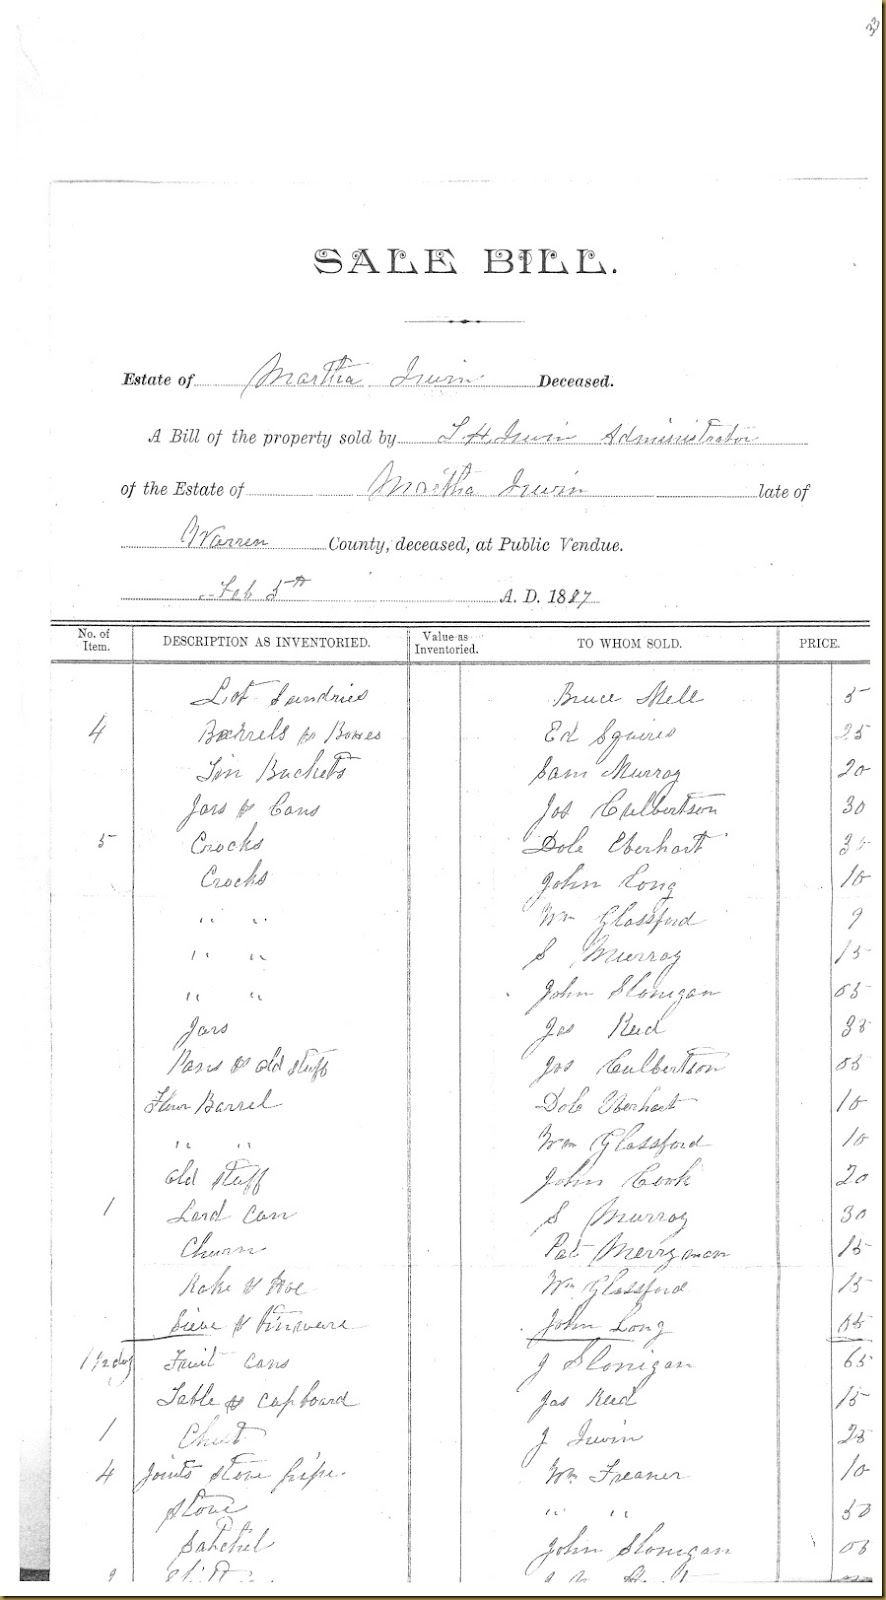 33
SALE BILL.
Estate of Martha Irwin Deceased.
A Bill of the property sold by T. H. Irwin Administrator
of the Estate of Martha Irwin late of
Warren County, deceased, at Public Vendue.
Feb 5th A. D. 1887
No. of Item. DESCRIPTION AS INVENTORIED. Value as Inventoried. TO WHOM SOLD. PRICE.
Lot Sundries Bruce Mell 5
4 Barrels & Boxes Ed Squires 25
Tin Buckets Sam Murray 20
Jars & Cans Jos Culbertson 30
5 Crocks Dole Eberhart 35
Crocks John Long 10
" " Wm Glassford 9
" " S Murray 15
" " John Slonigan 05
Jars Jas Reed 35
Pans & old stuff Jos Culbertson 05
Flour Barrel Dole Eberhart 10
" " Wm Glassford 10
Old stuff John Cook 20
1 Lard Can S Murray 30
Churn Pat Merryman 15
Rake & Hoe Wm Glassford 15
Sieve & tinware John Long 05
1 1/2 doz Fruit cans J Slonigan 65
Table & cupboard Jas Reed 15
1 Chest J Irwin 25
4 Joints stove pipe. Wm Freaner 10
Stove " " 50
Satchel John Slonigan 05